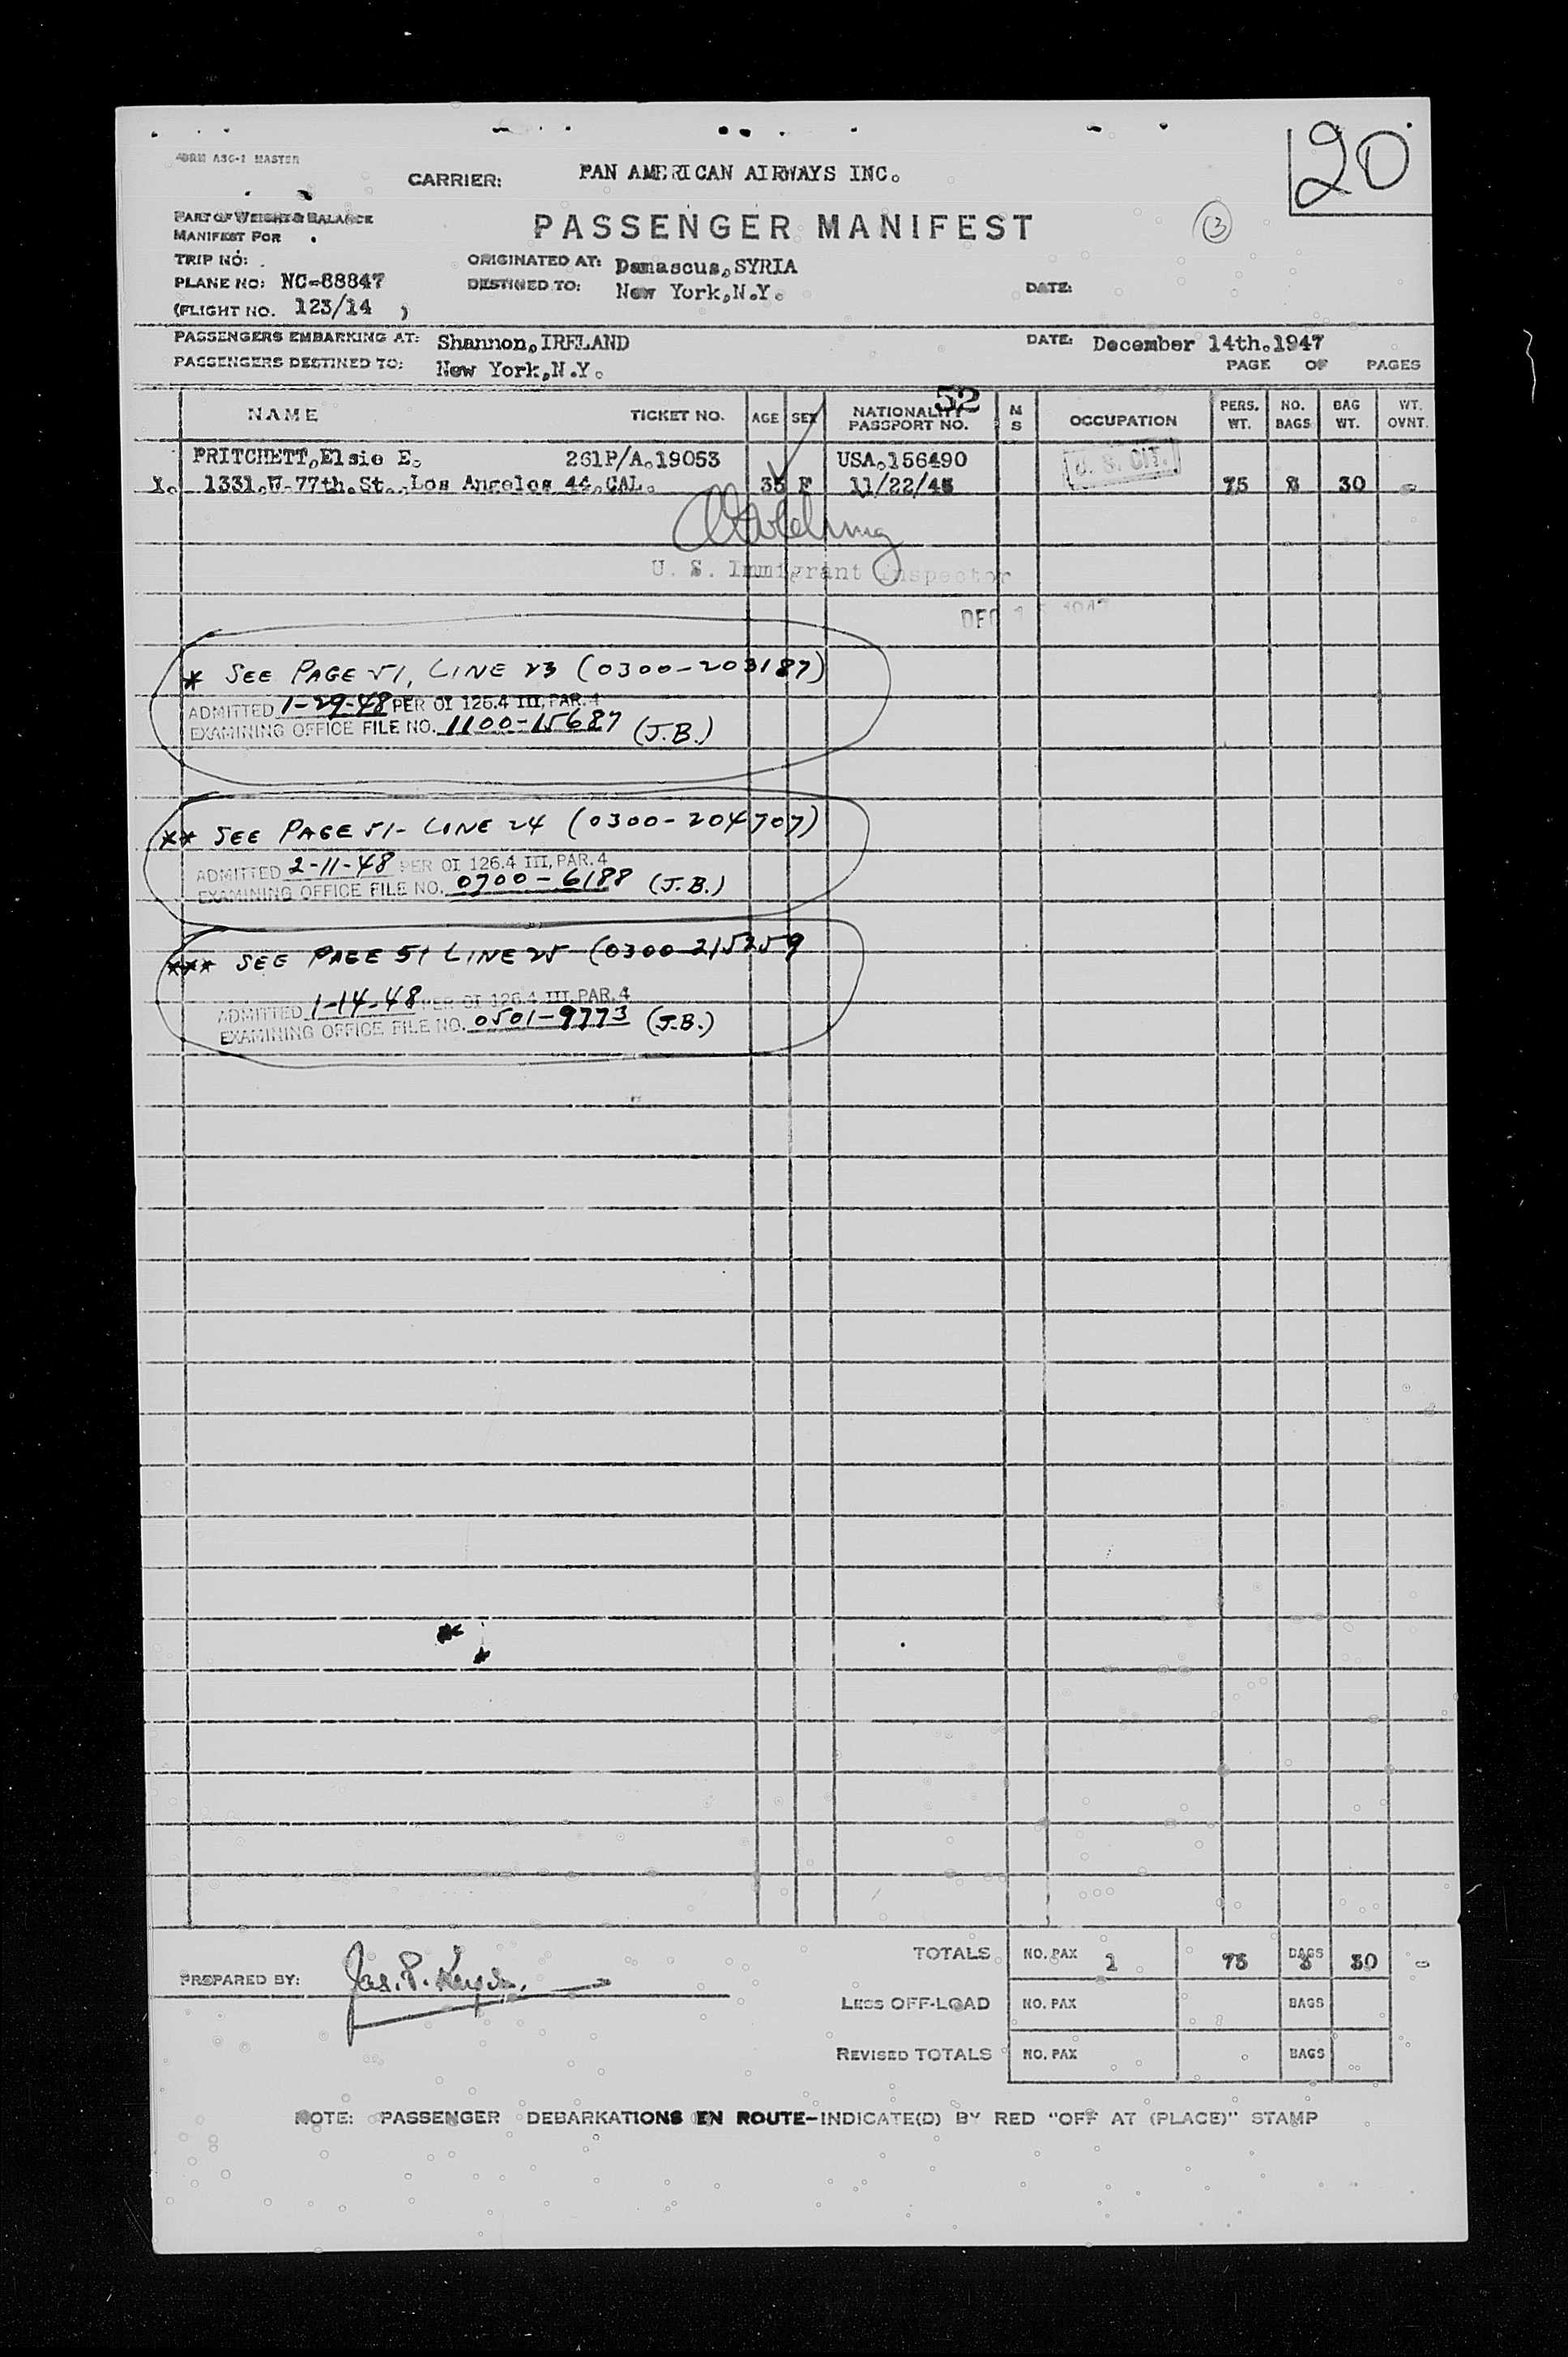 FORM ASC-1 MASTER
20
CARRIER: PAN AMERICAN AIRWAYS INC.
PART OF WEIGHT & BALANCE
MANIFEST FOR
PASSENGER MANIFEST
3
TRIP NO:
ORIGINATED AT: Damascus, SYRIA
PLANE NO: NC-88847
DESTINED TO: New York, N.Y.
DATE:
(FLIGHT NO. 123/14 )
PASSENGERS EMBARKING AT: Shannon, IRELAND
DATE: December 14th. 1947
PASSENGERS DESTINED TO: New York, N.Y.
PAGE OF PAGES
52
NAME TICKET NO. AGE SEX NATIONALITY PASSPORT NO. M S OCCUPATION PERS. WT. NO. BAGS BAG WT. WT. OVNT.
PRITCHETT, Elsie E. 261P/A.19053 USA.156490 U. S. CIT.
1. 1331.W-77th.St., Los Angeles 44, CAL. 35 F 11/22/45 75 30 -
U. S. Immigrant Inspector
DEC 1947
* SEE PAGE 51, LINE 23 (0300-203187)
ADMITTED 1-29-48 PER OI 126.4 III, PAR. 4
EXAMINING OFFICE FILE NO. 1100-15687 (J.B.)
** SEE PAGE 51- LINE 24 (0300-204707)
ADMITTED 2-11-48 PER OI 126.4 III, PAR. 4
EXAMINING OFFICE FILE NO. 0700-6188 (J.B.)
*** SEE PAGE 51 LINE 25 (0300-215259
ADMITTED 1-14-48 PER OI 126.4 III, PAR. 4
EXAMINING OFFICE FILE NO. 0501-9773 (J.B.)
TOTALS NO. PAX 1 75 BAGS 30 -
PREPARED BY: Jas. P.
LESS OFF-LOAD NO. PAX BAGS
REVISED TOTALS NO. PAX BAGS
NOTE: PASSENGER DEBARKATIONS EN ROUTE-INDICATE(D) BY RED "OFF AT (PLACE)" STAMP